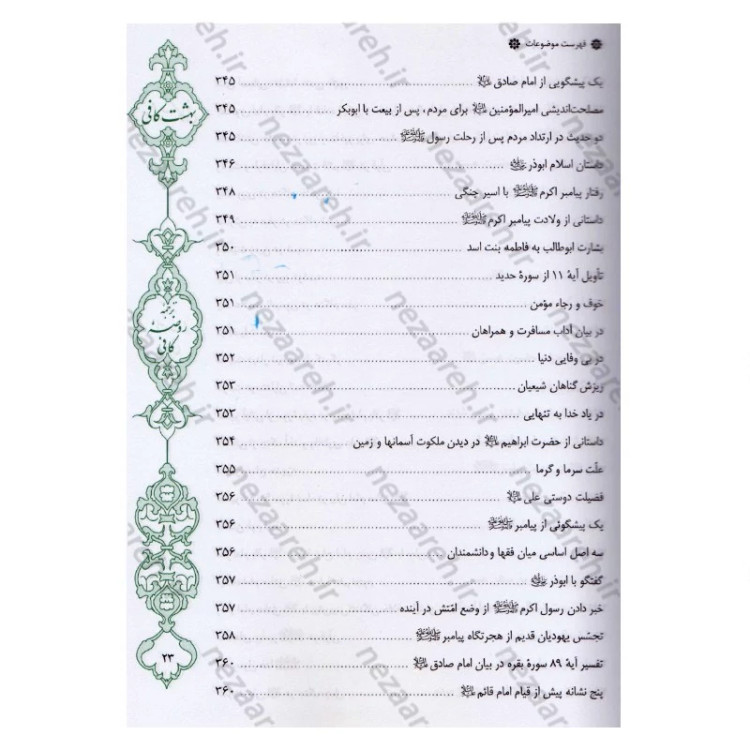 فهرست موضوعات
یک پیشگویی از امام صادق ........ ۳۴۵
مصلحت‌اندیشی امیرالمؤمنین برای مردم، پس از بیعت با ابوبکر ........ ۳۴۵
دو حدیث در ارتداد مردم پس از رحلت رسول ........ ۳۴۵
داستان اسلام ابوذر ........ ۳۴۶
رفتار پیامبر اکرم ﷺ با اسیر جنگی ........ ۳۴۸
داستانی از ولادت پیامبر اکرم ﷺ ........ ۳۴۹
بشارت ابوطالب به فاطمه بنت اسد ........ ۳۵۰
تأویل آیۀ ۱۱ از سورۀ حدید ........ ۳۵۱
خوف و رجاء مؤمن ........ ۳۵۱
در بیان آداب مسافرت و همراهان ........ ۳۵۱
در بی وفایی دنیا ........ ۳۵۲
ریزش گناهان شیعیان ........ ۳۵۳
در یاد خدا به تنهایی ........ ۳۵۳
داستانی از حضرت ابراهیم در دیدن ملکوت آسمانها و زمین ........ ۳۵۴
علّت سرما و گرما ........ ۳۵۵
فضیلت دوستی علی ........ ۳۵۶
یک پیشگوئی از پیامبر ﷺ ........ ۳۵۶
سه اصل اساسی میان فقها و دانشمندان ........ ۳۵۶
گفتگو با ابوذر ........ ۳۵۷
خبر دادن رسول اکرم ﷺ از وضع امّتش در آینده ........ ۳۵۷
تجسّس یهودیان قدیم از هجرتگاه پیامبر ﷺ ........ ۳۵۸
تفسیر آیۀ ۸۹ سورۀ بقره در بیان امام صادق ........ ۳۶۰
پنج نشانه پیش از قیام امام قائم ........ ۳۶۰
بهشت کافی
ترجمه
روضه
کافی
۲۳
nezaareh.ir